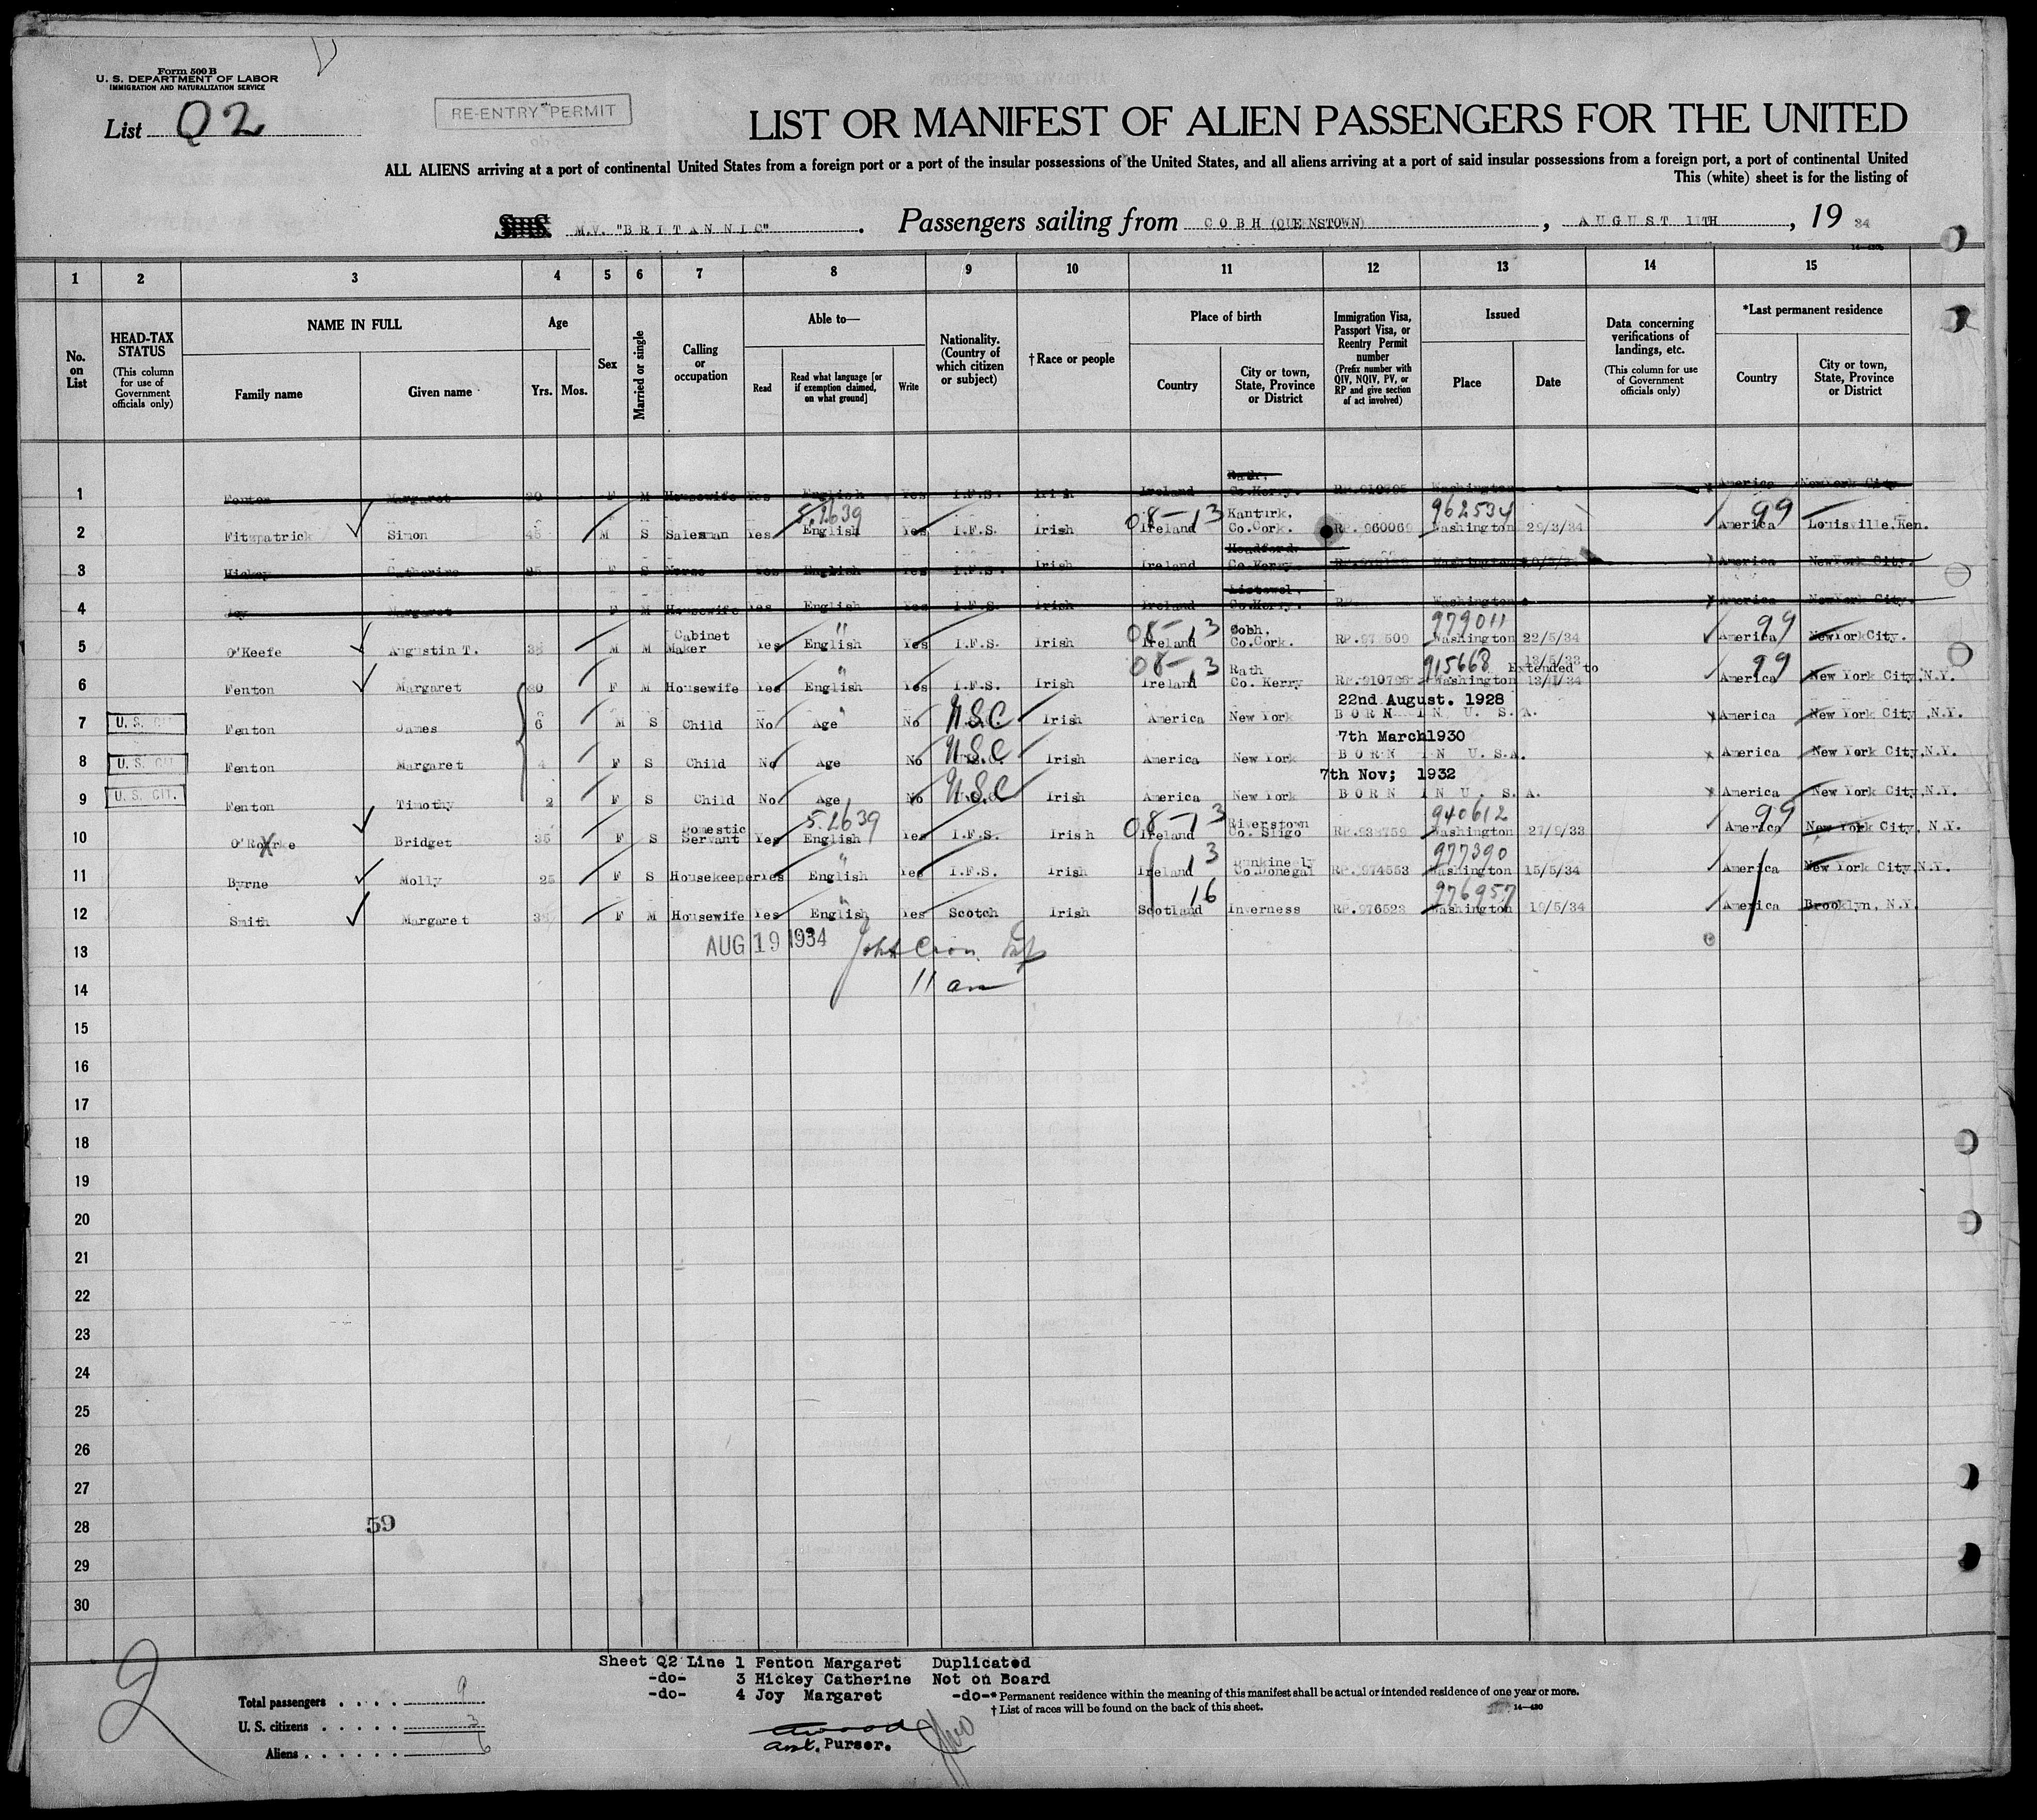 Form 500 B
U. S. DEPARTMENT OF LABOR
IMMIGRATION AND NATURALIZATION SERVICE
List Q2
RE-ENTRY PERMIT
LIST OR MANIFEST OF ALIEN PASSENGERS FOR THE UNITED
ALL ALIENS arriving at a port of continental United States from a foreign port or a port of the insular possessions of the United States, and all aliens arriving at a port of said insular possessions from a foreign port, a port of continental United
This (white) sheet is for the listing of
M.V. "BRITANNIC". Passengers sailing from COBH (QUEENSTOWN), AUGUST 11TH, 19 34
1 2 3 4 5 6 7 8 9 10 11 12 13 14 15
No. on List
HEAD-TAX STATUS
(This column for use of Government officials only)
NAME IN FULL
Family name
Given name
Age
Yrs.
Mos.
Sex
Married or single
Calling or occupation
Able to—
Read
Read what language [or if exemption claimed, on what ground]
Write
Nationality. (Country of which citizen or subject)
†Race or people
Place of birth
Country
City or town, State, Province or District
Immigration Visa, Passport Visa, or Reentry Permit number
(Prefix number with QIV, NQIV, PV, or RP and give section of act involved)
Issued
Place
Date
Data concerning verifications of landings, etc.
(This column for use of Government officials only)
*Last permanent residence
Country
City or town, State, Province or District
1 Fenton Margaret 30 F M Housewife Yes English Yes I.F.S. Irish Ireland Rath, Co.Kerry. RP.910795 Washington America NewYork City
5.2639 08-13 962534 99
2 Fitzpatrick Simon 45 M S Salesman Yes English Yes I.F.S. Irish Ireland Kanturk. Co.Cork. RP.960069 Washington 29/3/34 America Louisville,Ken.
3 Hickey Catherine 25 F S Nurse Yes English Yes I.F.S. Irish Ireland Headford. Co.Kerry. Washington America NewYork City.
4 Joy Margaret F M Housewife Yes English Yes I.F.S. Irish Ireland Listowel. Co.Kerry. RP. Washington America NewYork City.
" 08-13 979011 99
5 O'Keefe Augustin T. 38 M M Cabinet Maker Yes English Yes I.F.S. Irish Ireland Cobh. Co.Cork. Washington 22/5/34 America NewYorkCity.
" 08-13 915668 Extended to 99
6 Fenton Margaret 30 F M Housewife Yes English Yes I.F.S. Irish Ireland Rath Co. Kerry Washington America New York City,N.Y.
22nd August. 1928
7 U. S. CIT. Fenton James 6 M S Child No Age No U.S.C. Irish America New York BORN IN U. S. A. America New York City,N.Y.
7th March1930
8 U. S. CIT. Fenton Margaret 4 F S Child No Age No U.S.C. Irish America New York BORN IN U.S.A. America New York City,N.Y.
7th Nov; 1932
9 U. S. CIT. Fenton Timothy 2 F S Child No Age No U.S.C. Irish America New York BORN IN U. S. A. America New York City,N.Y.
5.2639 08-13 940612 99
10 O'Rorke Bridget 35 F S Domestic Servant Yes English Yes I.F.S. Irish Ireland Riverstown Co. Sligo RP.938759 Washington 27/9/33 America New York City, N.Y.
" 3 977390
11 Byrne Molly 25 F S Housekeeper Yes English Yes I.F.S. Irish Ireland Dunkineely Co.Donegal RP.974553 Washington 15/5/34 America New York City,N.Y.
" 16 976957
12 Smith Margaret 38 F M Housewife Yes English Yes Scotch Irish Scotland Inverness RP.976523 Washington 19/5/34 America Brooklyn, N.Y.
13 AUG 19 1934 John Cron
14 11 am
15
16
17
18
19
20
21
22
23
24
25
26
27
28 59
29
30
2
Sheet Q2 Line 1 Fenton Margaret Duplicated
-do- 3 Hickey Catherine Not on Board
-do- 4 Joy Margaret -do-
* Permanent residence within the meaning of this manifest shall be actual or intended residence of one year or more.
† List of races will be found on the back of this sheet.
14—430
Total passengers 9
U. S. citizens 3
Aliens 6
Asst. Purser.